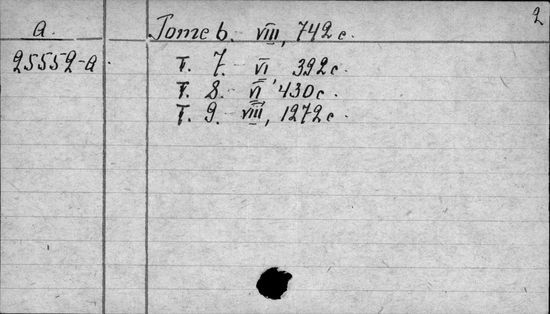 2
a. Tome 6. VIII, 742 c.
25552-a T. 7. VI 392 c.
T. 8. VI 430 c.
T. 9. VIII, 1272 c.